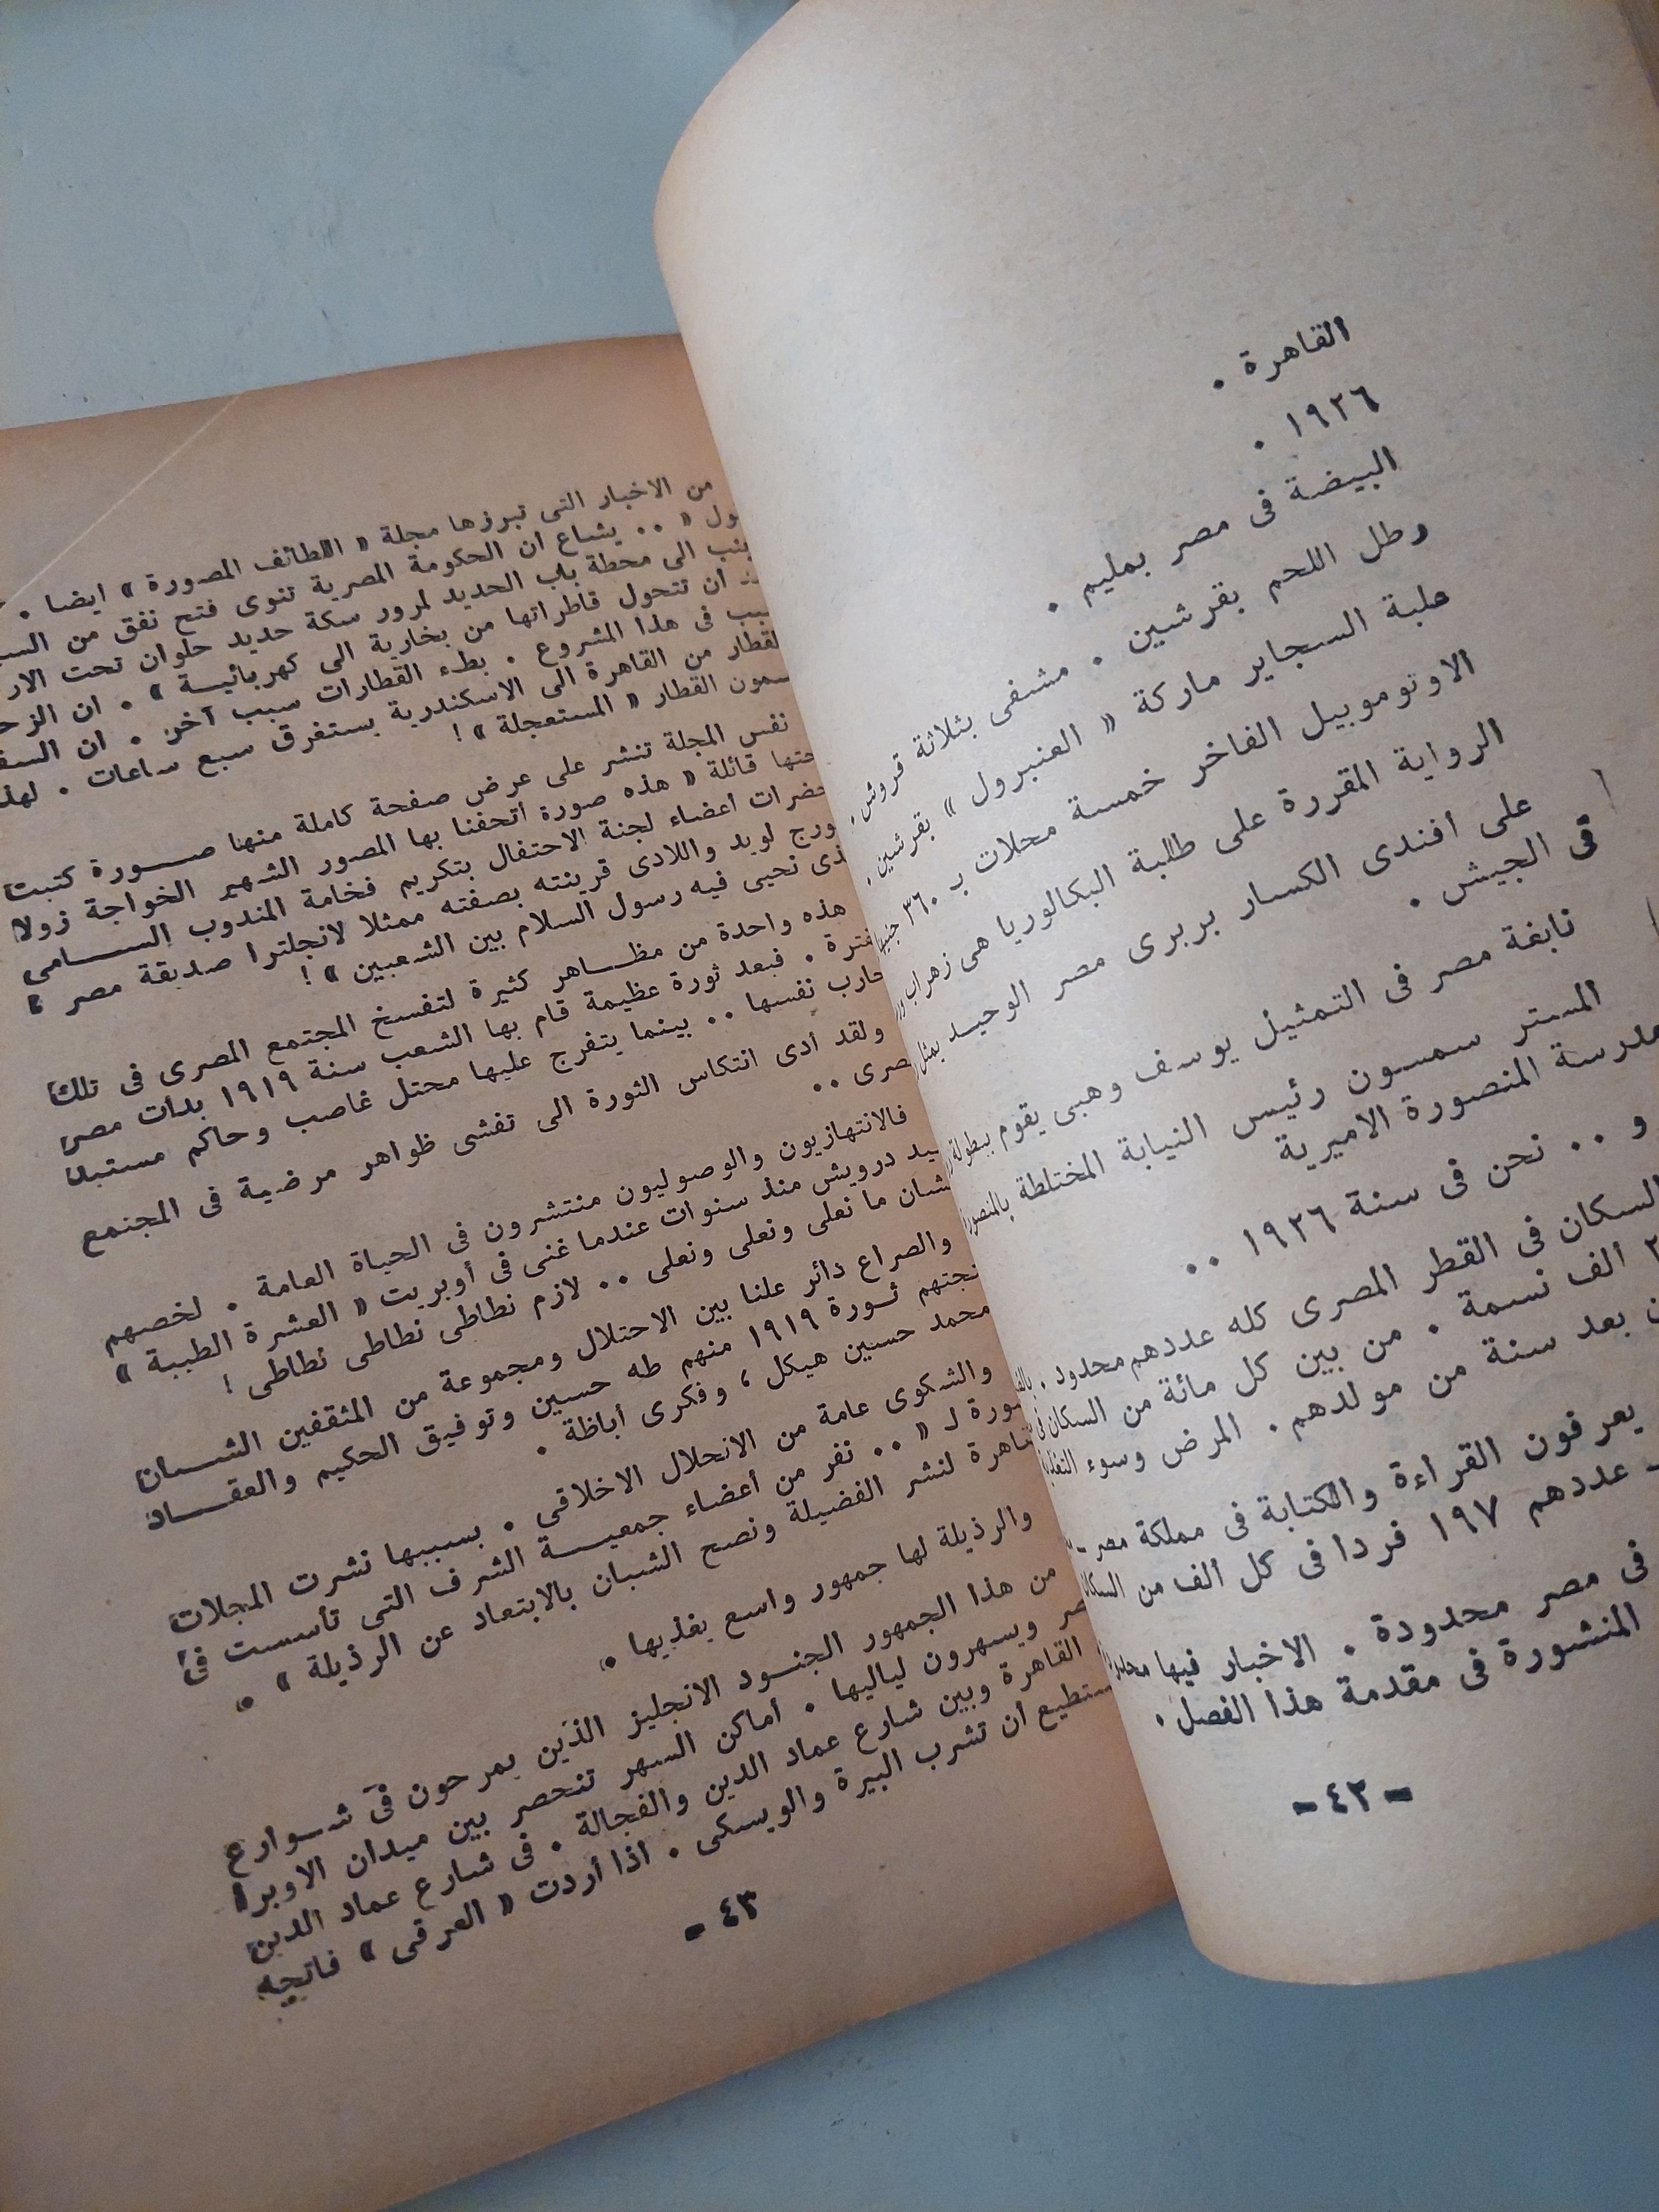 القاهرة .
١٩٢٦ .
البيضة فى مصر بمليم .
رطل اللحم بقرشين . مشفى بثلاثة قروش .
علبة السجاير ماركة « العنبرول » بقرشين .
الاوتوموبيل الفاخر خمسة محلات بـ ٣٦٠ جنيها
الرواية المقررة على طلبة البكالوريا هى زهراب ور
على افندى الكسار بربرى مصر الوحيد يمثل
فى الجيش .
نابغة مصر فى التمثيل يوسف وهبى يقوم ببطولة
المستر سمسون رئيس النيابة المختلطة بالمنصورة
مدرسة المنصورة الاميرية
و .. نحن فى سنة ١٩٢٦ ..
السكان فى القطر المصرى كله عددهم محدود .
الف نسمة . من بين كل مائة من السكان
بعد سنة من مولدهم . المرض وسوء التغذية
يعرفون القراءة والكتابة فى مملكة مصر -
عددهم ١٩٧ فردا فى كل الف من السكان
فى مصر محدودة . الاخبار فيها
المنشورة فى مقدمة هذا الفصل .
- ٤٢ -
من الاخبار التى تبرزها مجلة « اللطائف المصورة » ايضا .
ول « .. يشاع ان الحكومة المصرية تنوى فتح نفق من
نب الى محطة باب الحديد لمرور سكة حديد حلوان تحت
ان تتحول قاطراتها من بخارية الى كهربائية » . ان
بب فى هذا المشروع . بطء القطارات سبب آخر . ان
لقطار من القاهرة الى الاسكندرية يستغرق سبع ساعات .
سمون القطار « المستعجلة » !
نفس المجلة تنشر على عرض صفحة كاملة منها صورة كتبت
حتها قائلة « هذه صورة اتحفنا بها المصور الشهير الخواجة زولا
حضرات أعضاء لجنة الاحتفال بتكريم فخامة المندوب السامى
ورج لويد واللادى قرينته بصفته ممثلا لانجلترا صديقة مصر
ذى نحيى فيه رسول السلام بين الشعبين » !
هذه واحدة من مظاهر كثيرة لتفسخ المجتمع المصرى فى تلك
فترة . فبعد ثورة عظيمة قام بها الشعب سنة ١٩١٩ بدأت مصر
حارب نفسها .. بينما يتفرج عليها محتل غاصب وحاكم مستبد
ولقد أدى انتكاس الثورة الى تفشى ظواهر مرضية فى المجتمع
صرى ..
فالانتهازيون والوصوليون منتشرون فى الحياة العامة . لخصهم
يد درويش منذ سنوات عندما غنى فى أوبريت « العشرة الطيبة »
شان ما نعلى ونعلى ونعلى .. لازم نطاطى نطاطى نطاطى !
والصراع دائر علنا بين الاحتلال ومجموعة من المثقفين الشبان
نجتهم ثورة ١٩١٩ منهم طه حسين وتوفيق الحكيم والعقاد
محمد حسين هيكل ، وفكرى أباظة .
والشكوى عامة من الانحلال الاخلاقى . بسببها نشرت المجلات
ورة لـ « .. نفر من أعضاء جمعية الشرف التى تأسست فى
قاهرة لنشر الفضيلة ونصح الشبان بالابتعاد عن الرذيلة » .
والرذيلة لها جمهور واسع يغذيها .
من هذا الجمهور الجنود الانجليز الذين يمرحون فى شوارع
صر ويسهرون لياليها . أماكن السهر تنحصر بين ميدان الاوبرا
القاهرة وبين شارع عماد الدين والفجالة . فى شارع عماد الدين
ستطيع ان تشرب البيرة والويسكى . اذا أردت « العرقى » فاتجه
٤٣ -